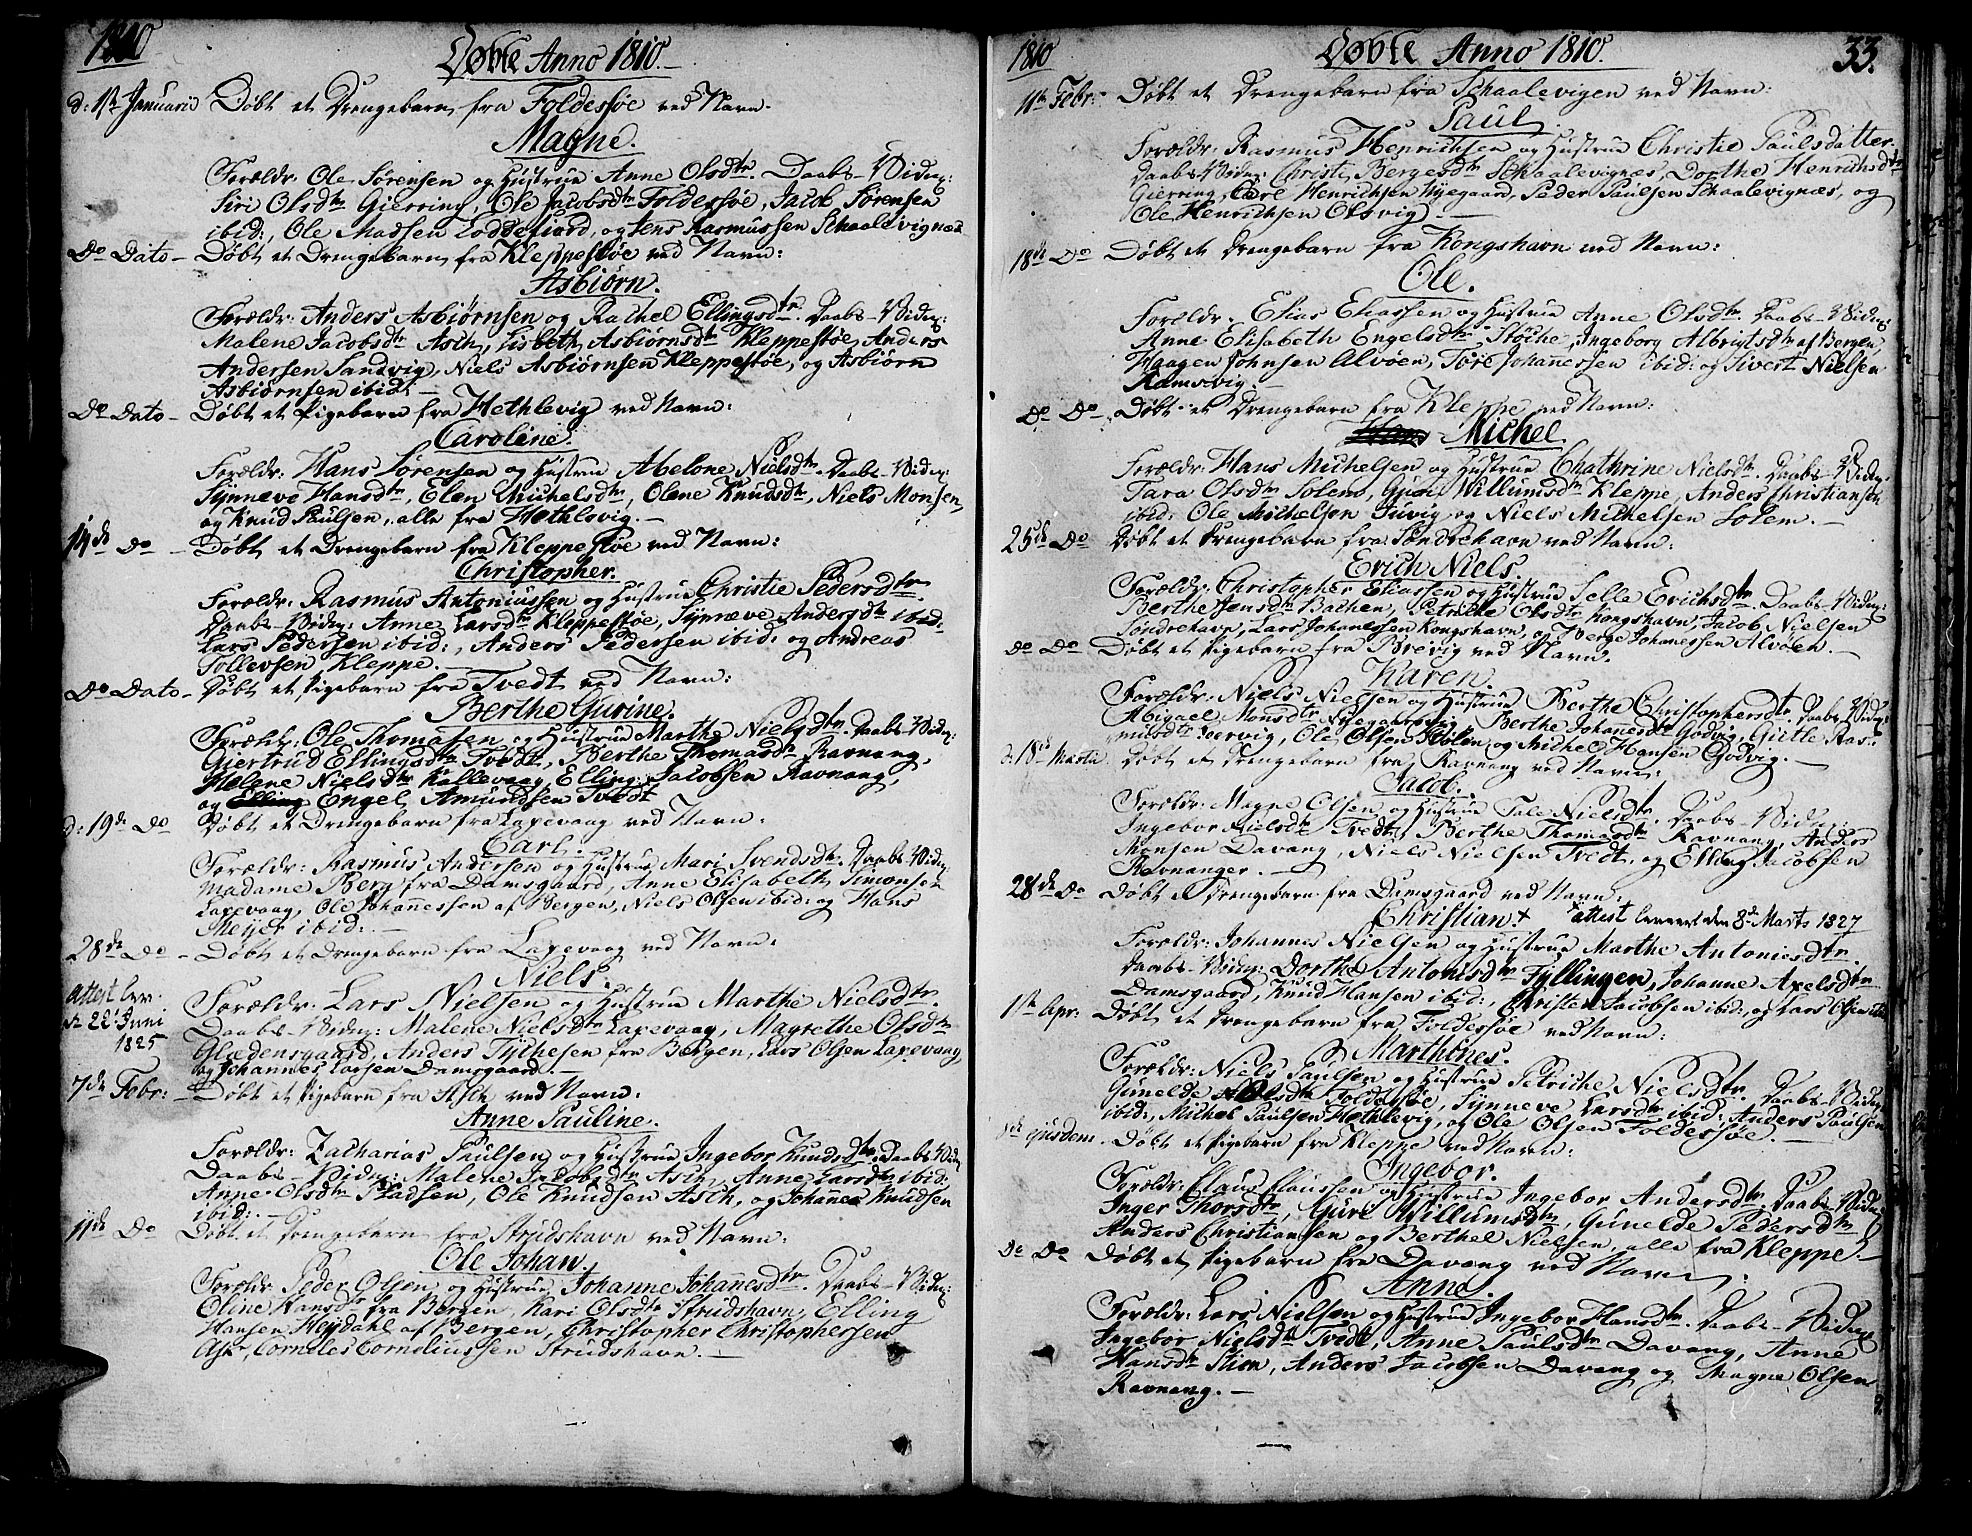 1810
Døbte Anno 1810.
d: 1ste Januarii Døbt et Drengebarn fra Foldessøe ved Navn.
Magne.
Forældr: Ole Sørensen og Hustrue Anne Olsdtr. Daabs-Vidny:
Siri Olsdtr Gierring, Ole Jacobsdtr Foldessøe, Jacob Sørensen
ibid:, Ole Madsen Loddefiord, og Jens Rasmussen Schaalevignæs
Do Dato - Døbt et Drengebarn fra Kleppestøe ved Navn:
Asbiørn.
Forældr: Anders Asbiørnsen og Rachel Ellingsdtr. Daabs-Vidny:
Malene Jacobsdtr Asch, Lisbeth Asbiørnsdtr Kleppestøe, Anders
Andersen Sandvig, Niels Asbiørnsen Kleppestøe, og Asbiørn
Asbiørnsen ibid: -
Do Dato - Døbt et Pigebarn fra Hethlevig ved Navn:
Caroline.
Forældr: Hans Sørensen og Hustrue Abelone Nielsdtr. Daabs-Vidny:
Synneve Hansdtr, Elen Michelsdtr, Olene Knudsdtr, Niels Monsen,
og Knud Paulsen, alle fra Hethlevig. -
14de Do - Døbt et Drengebarn fra Kleppestøe ved Navn:
Christopher.
Forældr: Rasmus Antoniussen og Hustrue Christie Pedersdtr.
Daabs-Vidny: Anne Larsdtr Kleppestøe, Synneve Andersdtr ibid:
Lars Pedersen ibid:, Anders Pedersen ibid: og Andreas
Tollevsen Kleppe. -
Do Dato - Døbt et Pigebarn fra Tvedt ved Navn:
Berthe Gurine.
Forældr: Ole Thomassen og Hustrue Marthe Nielsdtr. Daabs-Vidny:
Giertrud Ellingsdtr Tvedt, Berthe Thomasdtr Ravnang,
Helene Nielsdtr Kallevaag, Elling Jacobsen Ravnang,
og Elling Engel Amundsen Tvedt
d: 19de Do Døbt et Drengebarn fra Laxevaag ved Navn:
Carl.
Forældr: Rasmus Andersen og Hustrue Mari Svendsdtr. Daabs-Vidny:
Madame Berg fra Damsgaard, Anne Elisabeth Simonsen
Laxevaag, Ole Johannessen af Bergen, Niels Olsen ibid: og Hans
Meyer ibid: -
28de Do - Døbt et Drengebarn fra Laxevaag ved Navn:
Niels.
Attest lev:
d. 22 Juni
1825
Forældr: Lars Nielsen og Hustrue Marthe Nielsdtr.
Daabs-Vidny: Malene Nielsdtr Laxevaag, Magrethe Olsdtr
Glædensgaard, Anders Tychesen fra Bergen, Lars Olsen Laxevaag,
og Johannes Larsen Damsgaard. -
7de Febr: - Døbt et Pigebarn fra Asch ved Navn:
Anne Pauline.
Forældr: Zacharias Paulsen og Hustrue Ingebor Knudsdtr. Daabs-Vidny
Daabs-Vidny: Malene Jacobsdtr Asch, Anne Larsdtr ibid:,
Anne Olsdtr Stadsen, Ole Knudsen Asch, og Johannes Knudsen
ibid: -
11de Do Døbt et Drengebarn fra Strudshavn ved Navn:
Ole Johan.
Forældr: Peder Olsen og Hustrue Johanne Johannesdtr. Daabs-Vidny:
Oline Hansdtr fra Bergen, Kari Olsdtr Strudshavn, Elling
Hansen Heydahl af Bergen, Christopher Christophersen
Ask, Corneles Corneliussen Strudshavn. -
1810
Døbte Anno 1810.
33.
11te Febr: Døbt et Drengebarn fra Schaalevigen ved Navn:
Paul.
Forældr: Rasmus Henrichsen og Hustrue Christie Paulsdatter.
Daabs-Vidny: Christi Bergesdtr Schaalevignæs, Dorthe Henrichsdtr
Gierring, Carl Henrichsen Nyegaard, Peder Paulsen Schaalevignæs, og
Ole Henrichsen Olsvig. -
18de Do - Døbt et Drengebarn fra Kongshavn ved Navn:
Ole.
Forældr: Elias Eliassen og Hustrue Anne Olsdtr. Daabs-Vidny:
Anne Elisabeth Engelsdtr Støche, Ingeborg Albrigtsdtr af Bergen,
Haagen Johnsen Alvøen, Tore Johannessen ibid: og Sivert Nielsen
Ramsvig. -
Do Do - Døbt et Drengebarn fra Kleppe ved Navn:
Hans Michel.
Forældr: Hans Michelsen og Hustrue Chathrine Nielsdtr. Daabs-Vidny:
Tara Olsdtr Solem, Guri Willumsdtr Kleppe, Anders Christiansen
ibid: Ole Michelsen Juvig og Niels Michelsen Solem. -
25de Do Døbt et Drengebarn fra Søndrehavn ved Navn:
Erich Niels.
Forældr: Christopher Eliassen og Hustrue Selle Erichsdtr. Daabs-Vidny:
Berthe Jensdtr Bachen, Petriche Olsdtr Kongshavn, Jacob Nielsen
Søndrehavn, Lars Johanessen Kongshavn, og Berge Johannessen Alvøen. -
Do Do - Døbt et Pigebarn fra Brevig ved Navn:
Karen.
Forældr: Niels Nielsen og Hustrue Berthe Christophersdtr. Daabs-Vidny:
Abigael Monsdtr Nyegaardsvig, Berthe Johannesdtr Godvig, Girtle Ras-
musdtr, Ole Olsen Stølen og Michel Hansen Godvig. -
d: 18de Martii Døbt et Drengebarn fra Ravnang ved Navn:
Jacob.
Forældr: Magne Olsen og Hustrue Tale Nielsdtr. Daabs-Vidny:
Ingebor Nielsdtr Tvedt, Berthe Thomasdtr Ravnang, Anders
Monsen Davang, Niels Nielsen Tvedt, og Elling Jacobsen
Ravnanger. -
28de Do Døbt et Drengebarn fra Damsgaard ved Navn:
Christian + + attest leveret den 8de Marts 1827
Forældr: Johannes Nielsen og Hustrue Marthe Antonisdtr.
Daabs-Vidny: Dorthe Antonisdtr Fyllingen, Johanne Axelsdtr
Damsgaard, Knud Hansen ibid:, Christen Jacobsen ibid:, og Lars Olsen ibid:
1ste Apr: Døbt et Drengebarn fra Foldessøe ved Navn:
Marthines.
Forældr: Niels Paulsen og Hustrue Petriche Nielsdtr. Daabs-Vidny:
Gunelde Olsdtr Foldessøe, Synneve Larsdtr ibid: Anders Paulsen
ibid:, Michel Paulsen Hethlevig, og Ole Olsen Foldessøe. -
8de ejusdem. Døbt et Pigebarn fra Kleppe ved Navn:
Ingebor.
Forældr: Claus Claussen og Hustrue Ingebor Andersdtr. Daabs-Vidny:
Inger Thorsdtr, Guri Willumsdtr, Gunelde Pedersdtr
Anders Christiansen og Berthel Nielsen, alle fra Kleppe -
Do Do Døbt et Pigebarn fra Davang ved Navn:
Anne.
Forældr: Lars Nielsen og Hustrue Ingebor Hansdtr. Daabs-Vidny:
Ingebor Nielsdtr Tvedt, Anne Paulsdtr Davang, Anne
Hansdtr Stien, Anders Jacobsen Davang og Magne Olsen
Ravnang. -